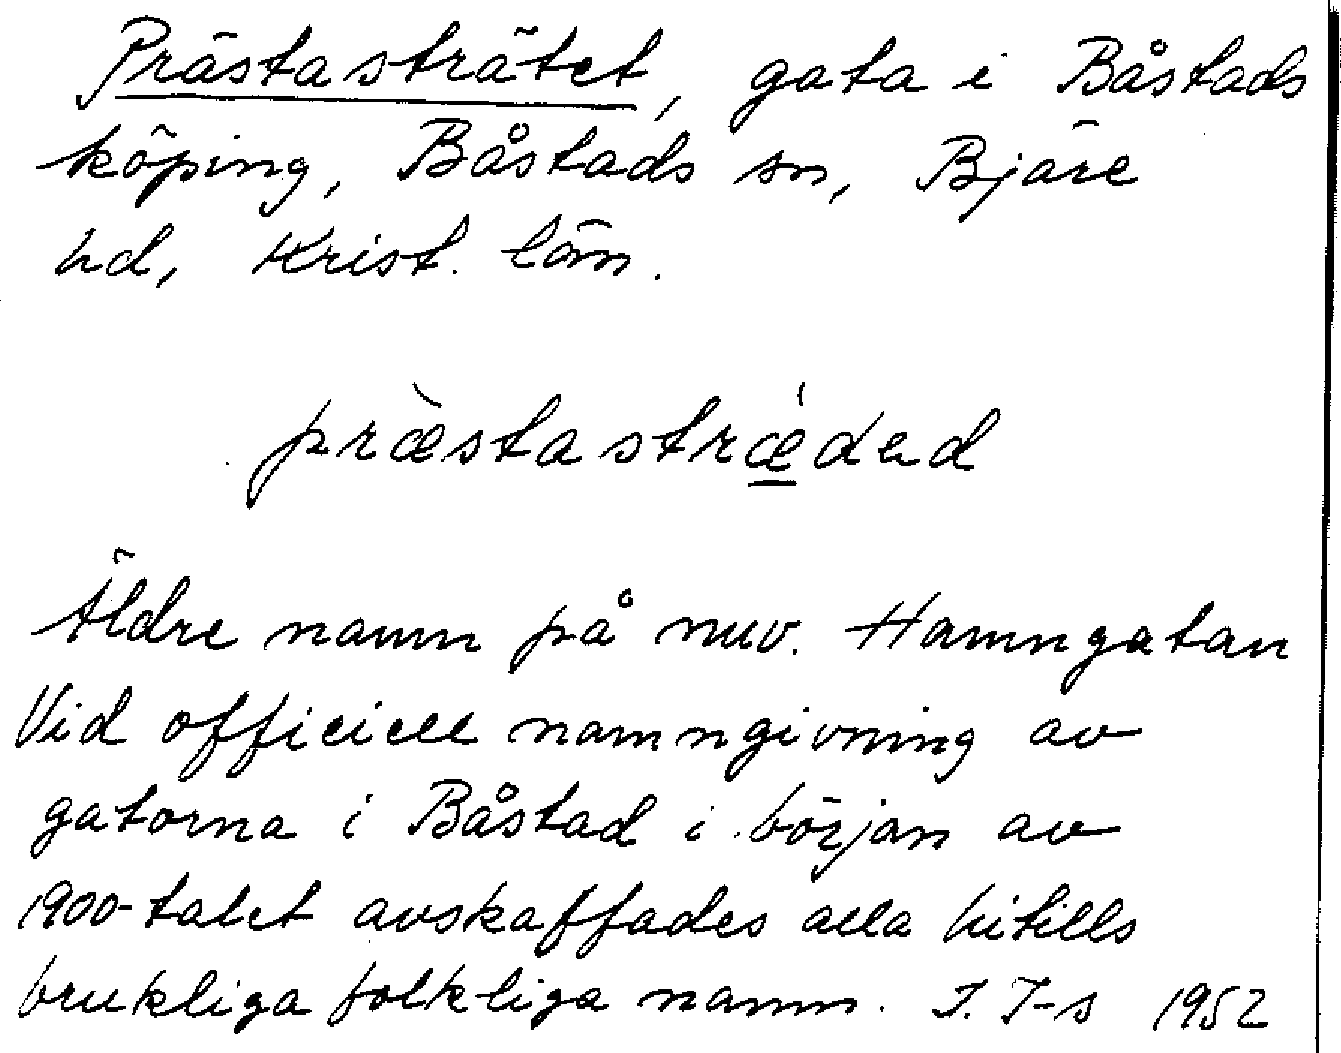 Prästasträtet, gata i Båstads
köping, Båstads sn, Bjäre
hd, Krist. län.
præ̀stastrǽ̲dəd
Äldre namn på nuv. Hamngatan
Vid officiell namngivning av
gatorna i Båstad i början av
1900-talet avskaffades alla hitills
brukliga folkliga namn. I. I-s 1952